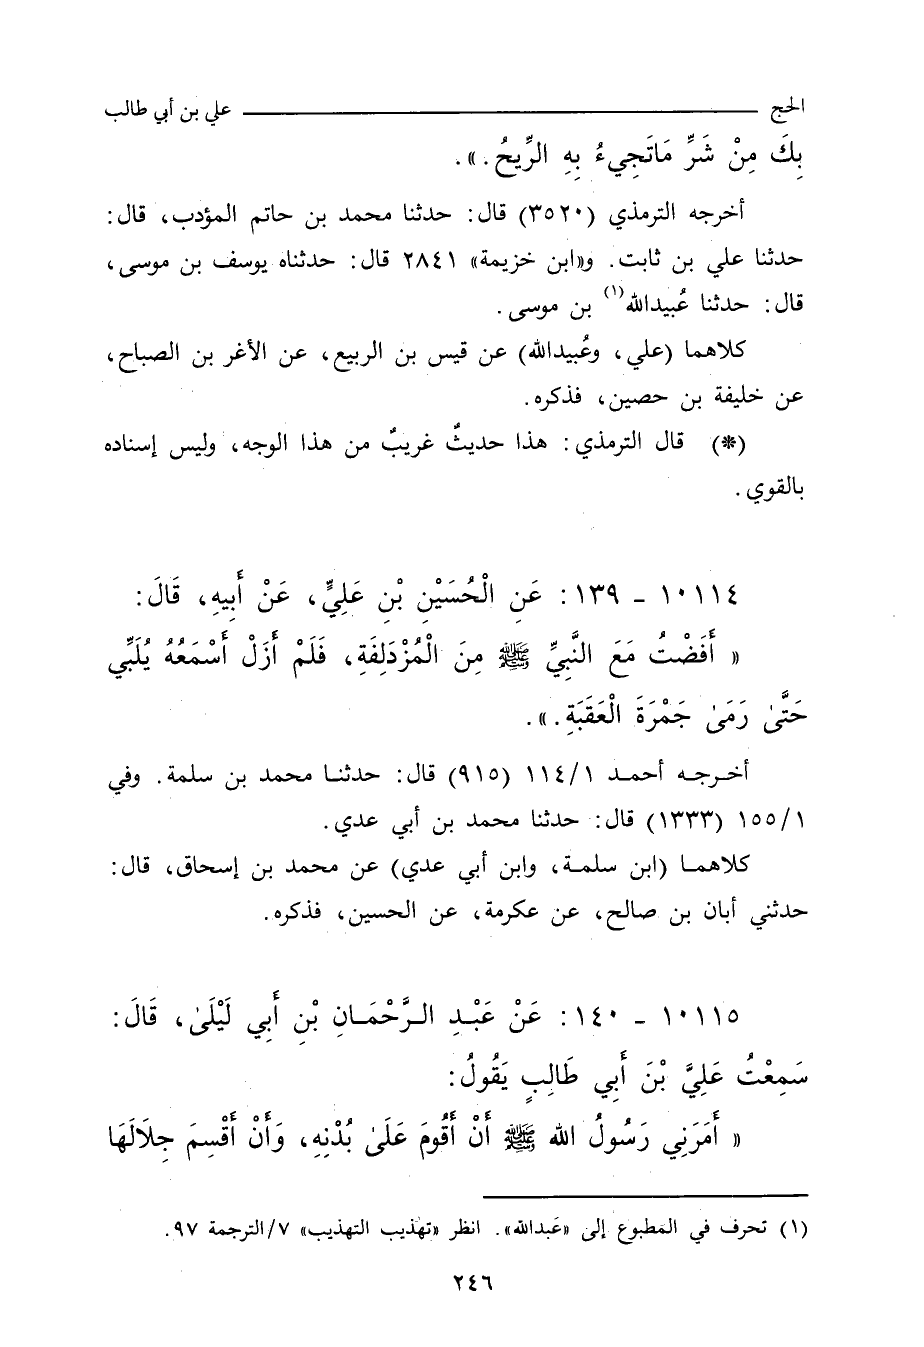 الحج ـــــــــــــــــــــ علي بن أبي طالب
بِكَ مِنْ شَرِّ مَاتَجِيءُ بِهِ الرِّيحُ.».
أخرجه الترمذي (٣٥٢٠) قال: حدثنا محمد بن حاتم المؤدب، قال:
حدثنا علي بن ثابت. و«ابن خزيمة» ٢٨٤١ قال: حدثناه يوسف بن موسى،
قال: حدثنا عُبيدالله(١) بن موسى.
كلاهما (علي، وعُبيدالله) عن قيس بن الربيع، عن الأغر بن الصباح،
عن خليفة بن حصين، فذكره.
(*) قال الترمذي: هذا حديثٌ غريبٌ من هذا الوجه، وليس إسناده
بالقوي.
١٠١١٤ - ١٣٩: عَنِ الْحُسَيْنِ بْنِ عَلِيٍّ، عَنْ أَبِيهِ، قَالَ:
« أَفَضْتُ مَعَ النَّبِيِّ ﷺ مِنَ الْمُزْدَلِفَةِ، فَلَمْ أَزَلْ أَسْمَعُهُ يُلَبِّي
حَتَّىٰ رَمَىٰ جَمْرَةَ الْعَقَبَةِ.».
أخـرجـه أحمـد ١١٤/١ (٩١٥) قال: حدثنـا محمد بن سلمة. وفي
١٥٥/١ (١٣٣٣) قال: حدثنا محمد بن أبي عدي.
كلاهمـا (ابن سلمـة، وابن أبي عدي) عن محمد بن إسحاق، قال:
حدثني أبان بن صالح، عن عكرمة، عن الحسين، فذكره.
١٠١١٥ - ١٤٠: عَنْ عَبْـدِ الـرَّحْمَـانِ بْنِ أَبِي لَيْلَىٰ، قَالَ:
سَمِعْتُ عَلِيَّ بْنَ أَبِي طَالِبٍ يَقُولُ:
« أَمَرَنِي رَسُولُ الله ﷺ أَنْ أَقُومَ عَلَىٰ بُدْنِهِ، وَأَنْ أَقْسِمَ جِلَالَهَا
(١) تحرف في المطبوع إلى «عَبدالله». انظر «تهذيب التهذيب» ٧/الترجمة ٩٧.
٢٤٦